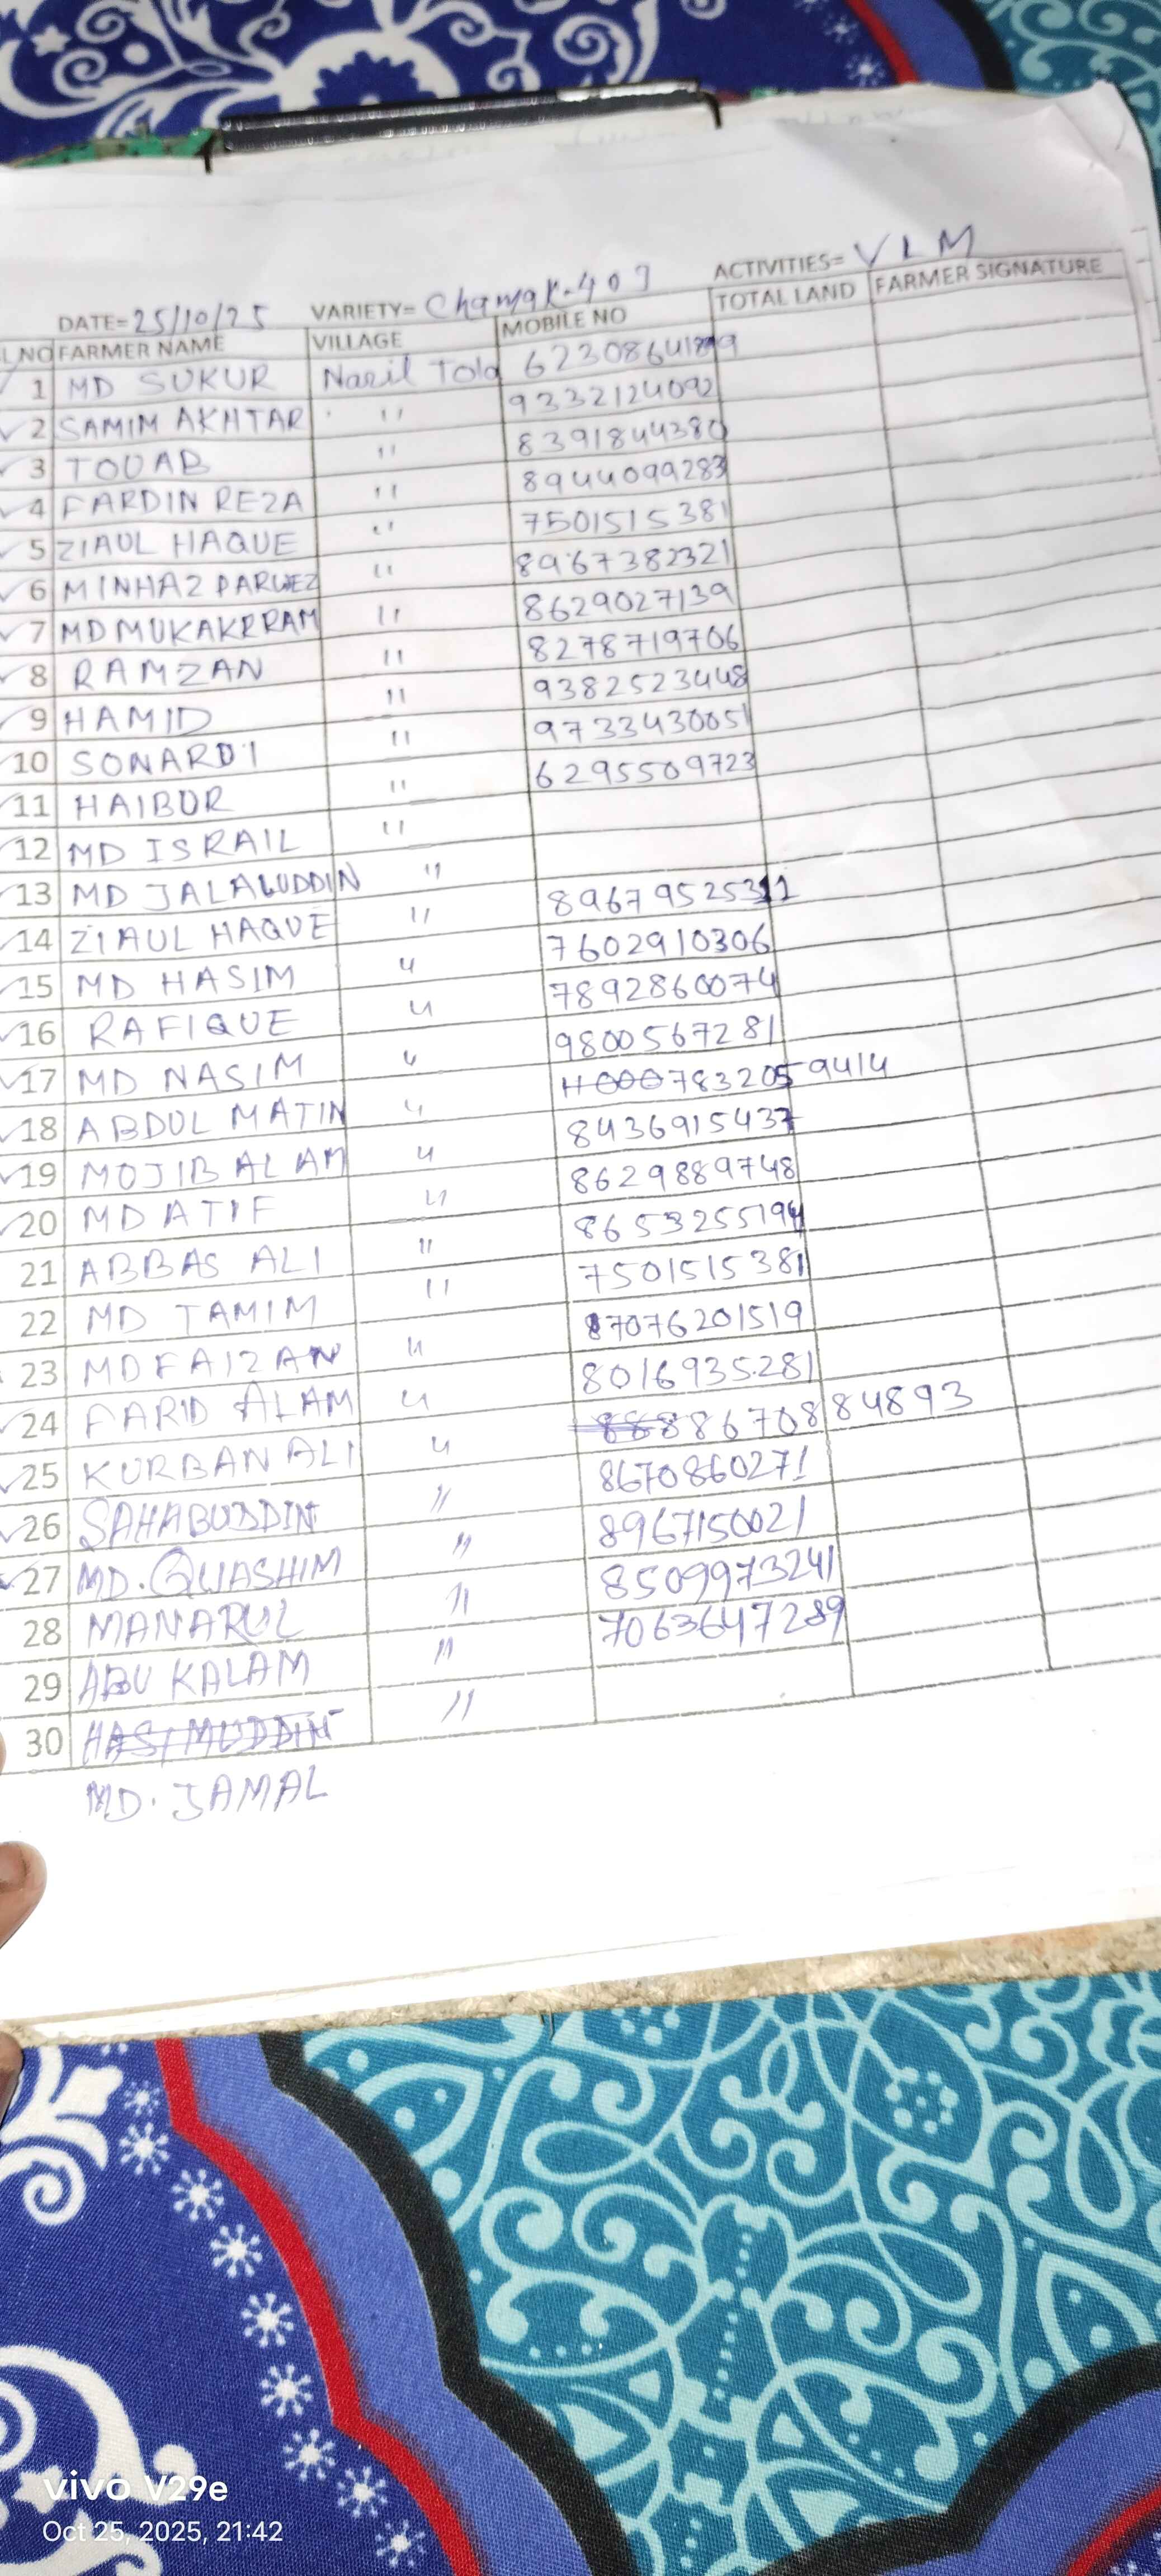 DATE=25/10/25 VARIETY= Chamak-409 ACTIVITIES= VLM
L.NO FARMER NAME VILLAGE MOBILE NO TOTAL LAND FARMER SIGNATURE
1 MD SUKUR Nazil Tola
2 SAMIM AKHTAR " 9332124092
3 TOUAB " 8391844380
4 FARDIN REZA " 8944099283
5 ZIAUL HAQUE " 7501515381
6 MINHAZ PARWEZ " 8967382321
7 MD MUKAKRRAM " 8629027139
8 RAMZAN " 8278719706
9 HAMID " 9382523448
10 SONARDI " 9733430051
11 HAIBUR " 6295509723
12 MD ISRAIL "
13 MD JALALUDDIN "
14 ZIAUL HAQUE "
15 MD HASIM " 7602910306
16 RAFIQUE " 7892860074
17 MD NASIM " 9800567281
18 ABDUL MATIN " 7832059414
19 MOJIB ALAM " 8436915437
20 MD ATIF " 8629889748
21 ABBAS ALI " 8653255194
22 MD TAMIM " 7501515381
23 MD FAIZAN " 7076201519
24 FARID ALAM " 8016935281
25 KURBAN ALI " 8670884893
26 SAHABUDDIN " 8670860271
27 MD. QUASHIM " 8967150021
28 MANARUL " 8509973241
29 ABU KALAM " 7063647289
30 HASIMUDDIN "
MD. JAMAL
vivo V29e
Oct 25, 2025, 21:42